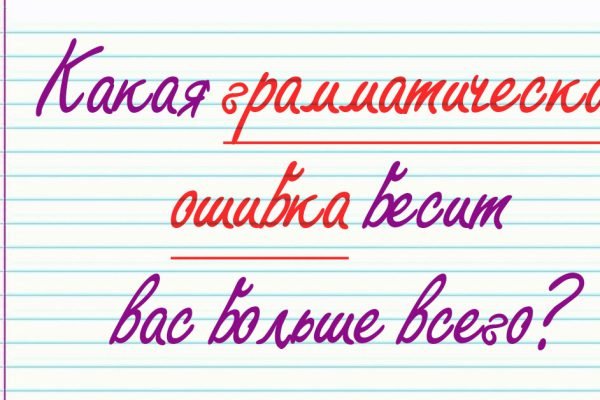 Какая грамматическа
ошибка бесит
вас больше всего?